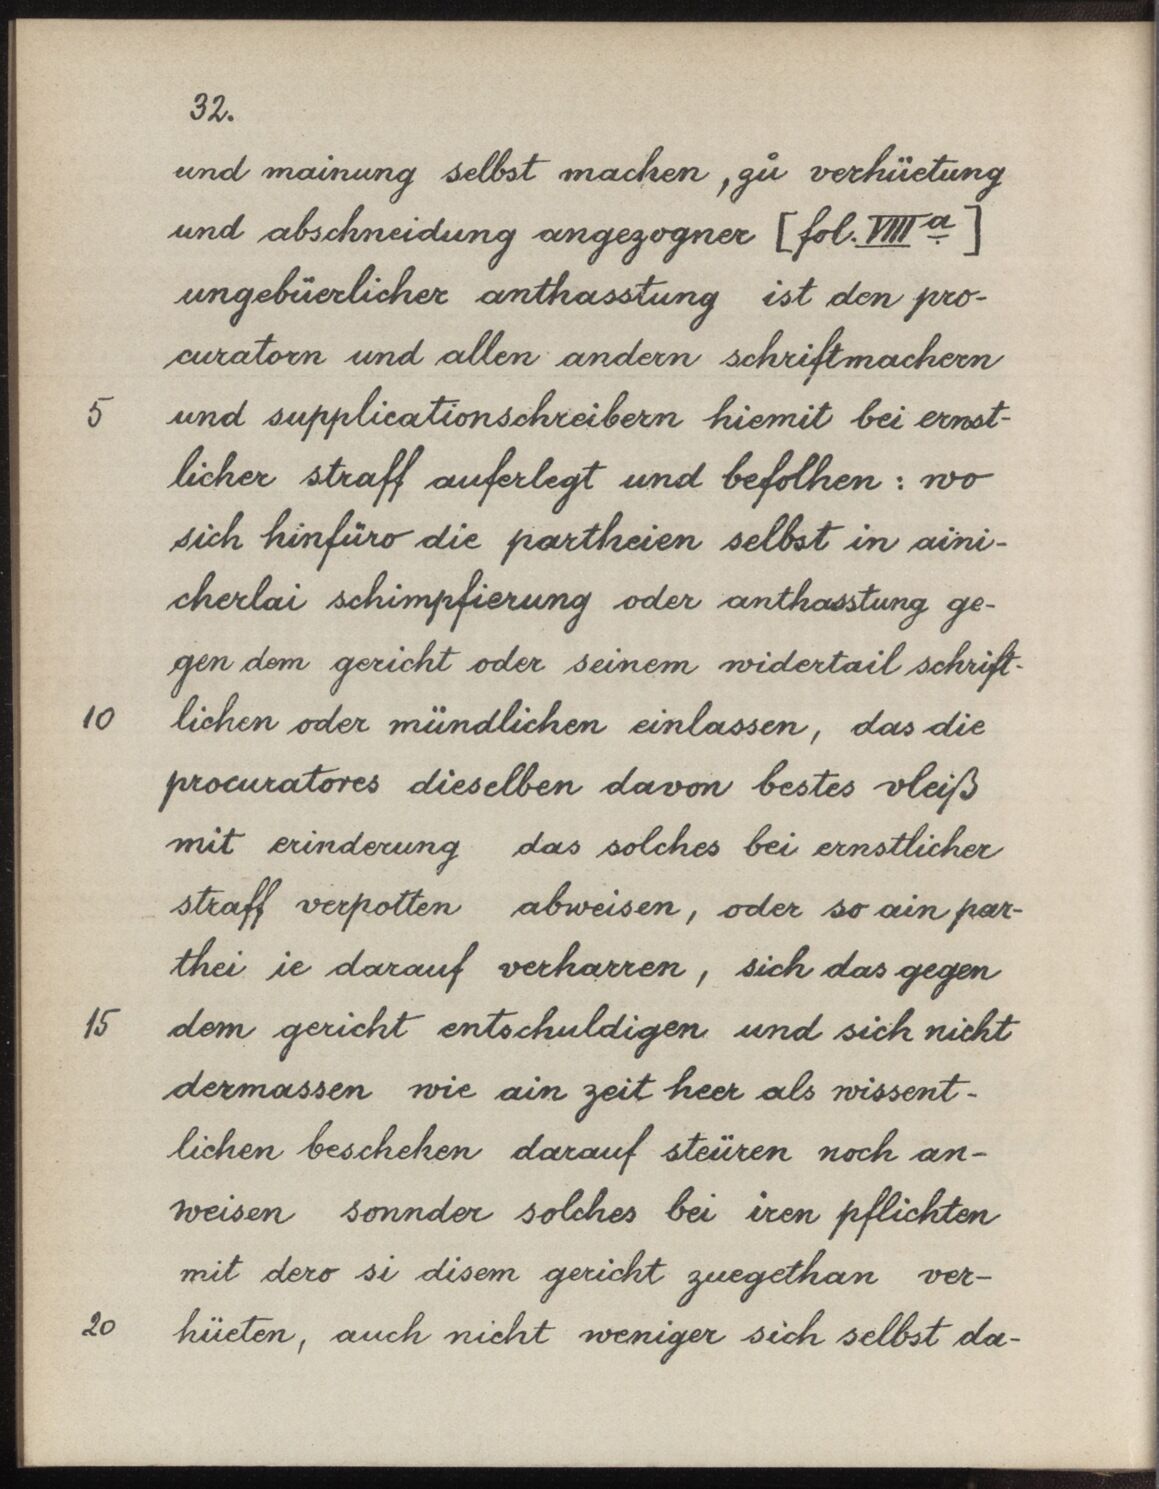 32.
und mainung selbst machen, zů verhüetung
und abschneidung angezogner [fol. VIII a]
ungebüerlicher anthasstung ist den pro-
curatorn und allen andern schriftmachern
5 und supplicationschreibern hiemit bei ernst-
licher straff auferlegt und befolhen: wo
sich hinfüro die partheien selbst in aini-
cherlai schimpfierung oder anthasstung ge-
gen dem gericht oder seinem widertail schrift-
10 lichen oder mündlichen einlassen, das die
procuratores dieselben davon bestes vleiß
mit erinderung das solches bei ernstlicher
straff verpotten abweisen, oder so ain par-
thei ie darauf verharren, sich das gegen
15 dem gericht entschuldigen und sich nicht
dermassen wie ain zeit heer als wissent-
lichen beschehen darauf steüren noch an-
weisen sonnder solches bei iren pflichten
mit dero si disem gericht zuegethan ver-
20 hüeten, auch nicht weniger sich selbst da-